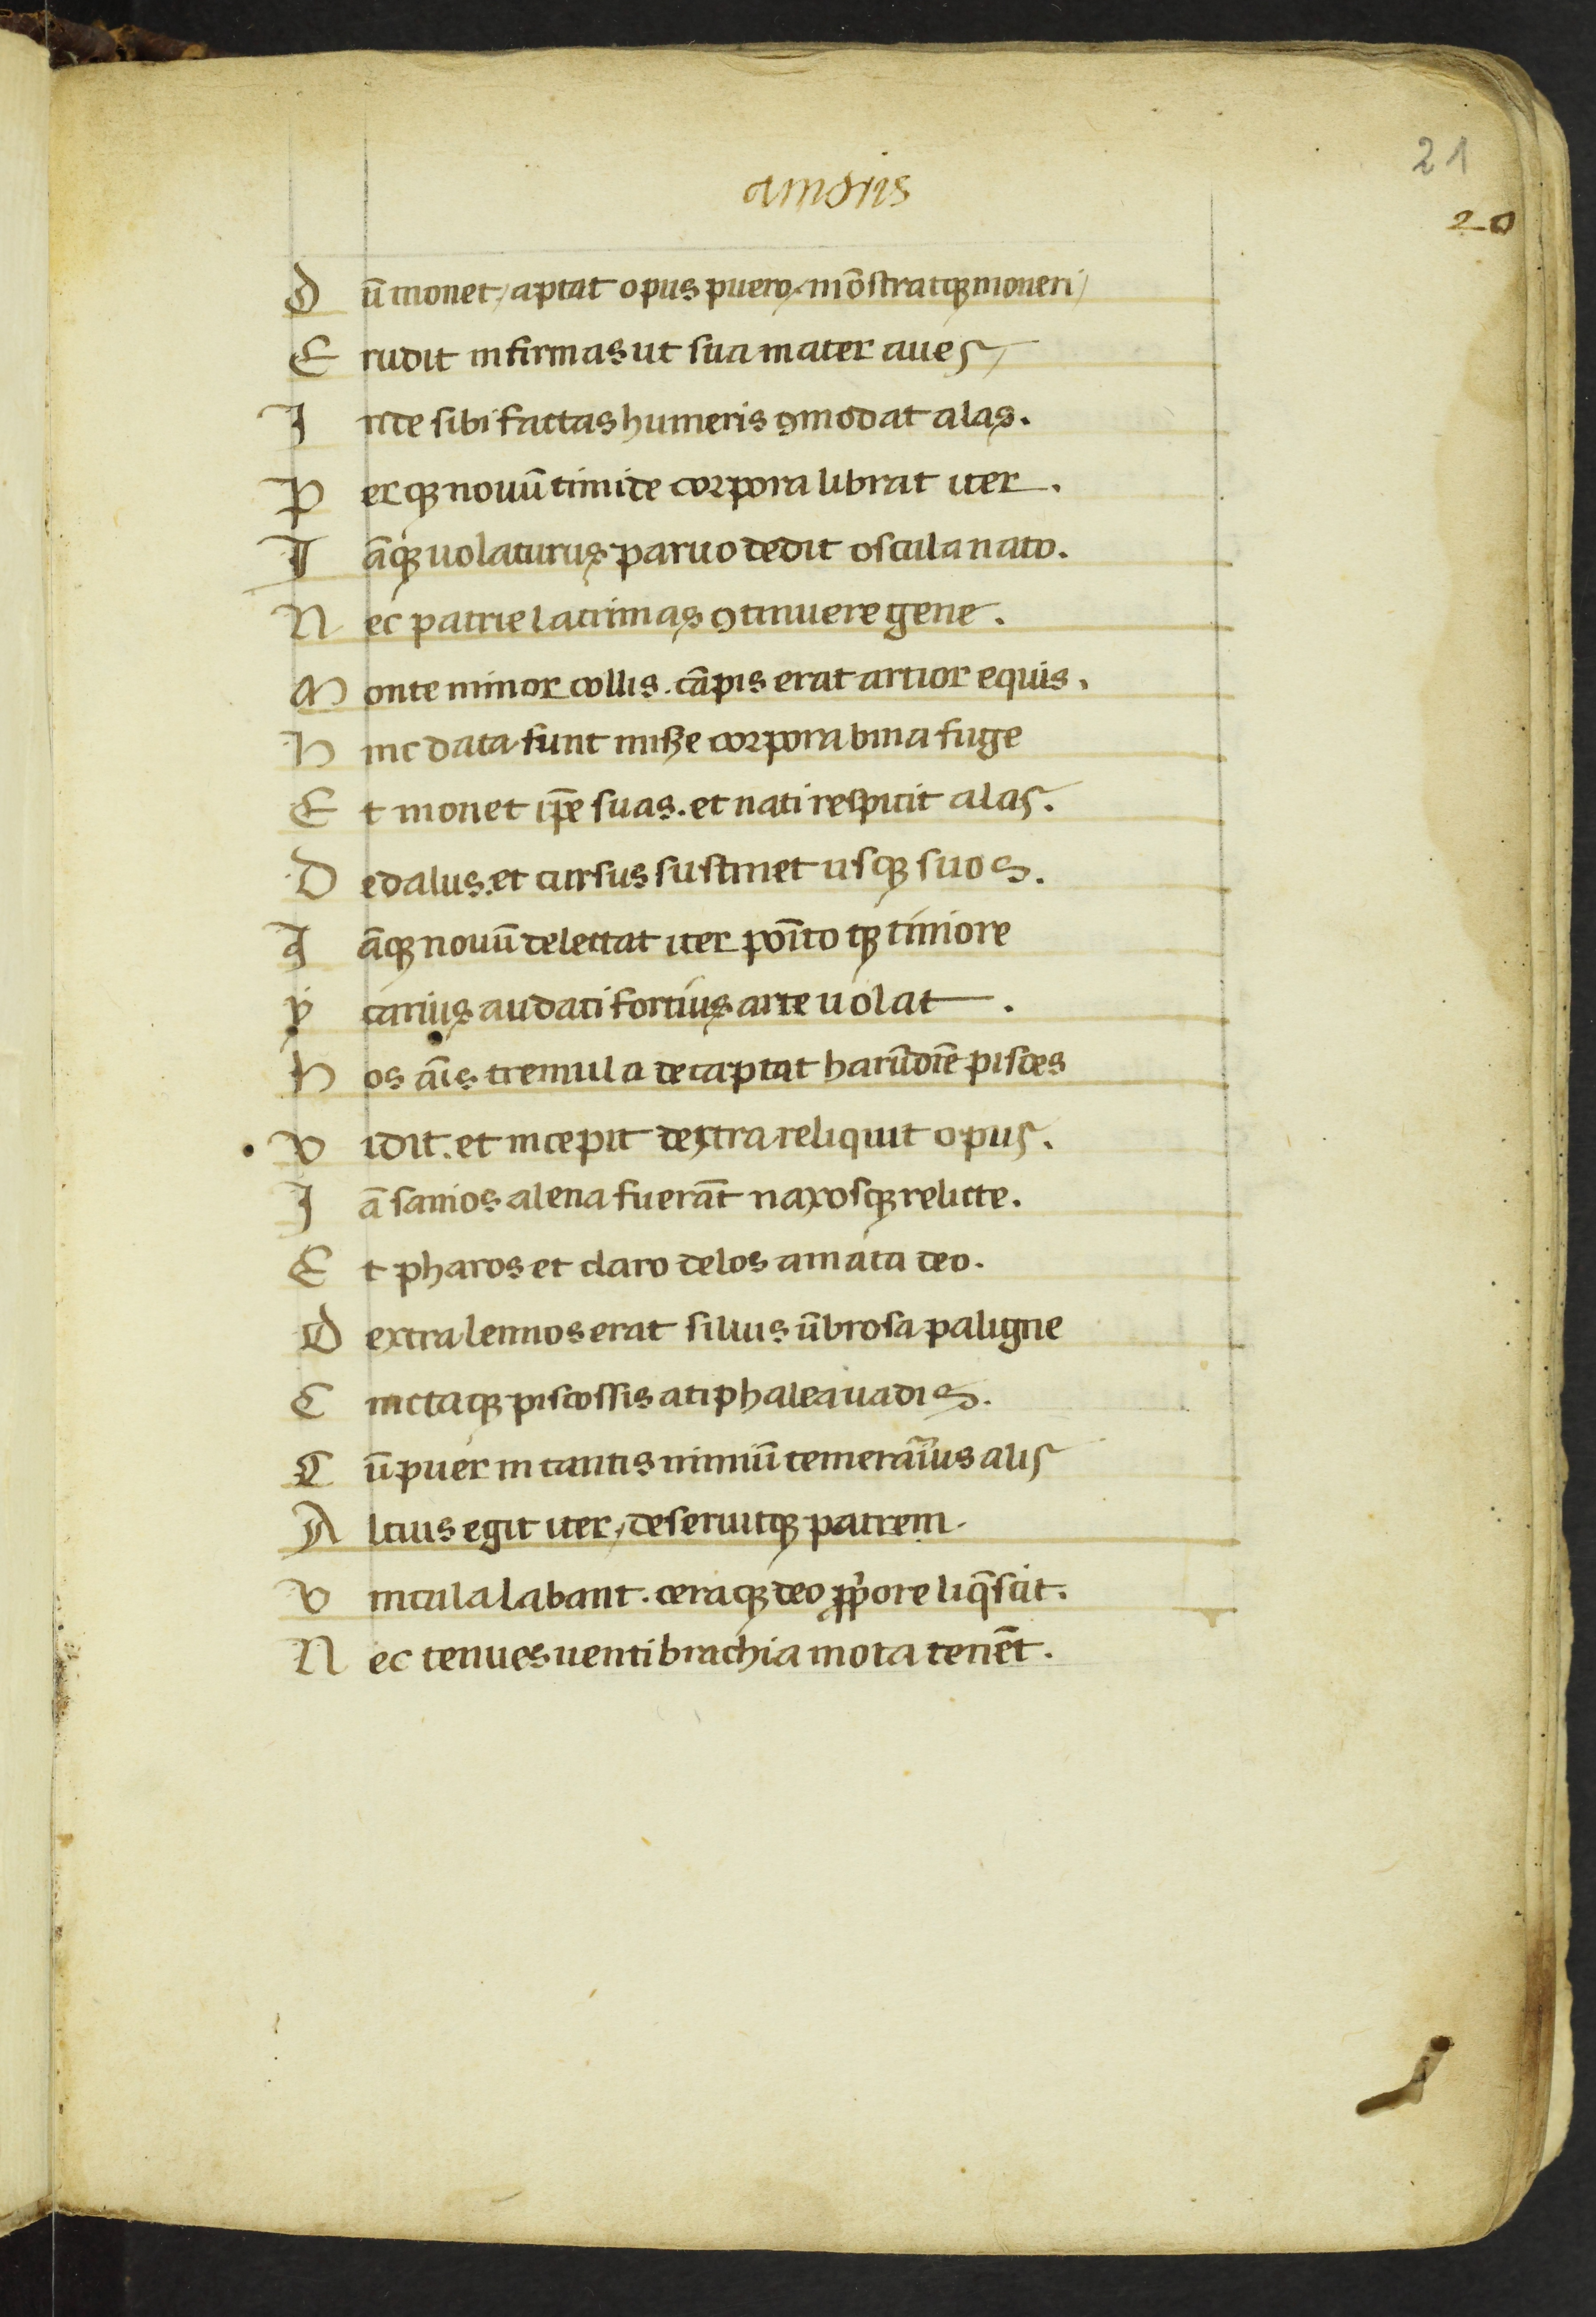 amoris
21
20
Dū monet, aptat opus puero, mōstratqꝫ moueri,
Erudit infirmas ut sua mater aues,
Inde sibi factas humeris ꝯmodat alas.
Perqꝫ nouū timide corpora librat iter.
Iāqꝫ uolaturus paruo dedit oscula nato.
Nec patrie lacrimas ꝯtinuere gene.
Monte minor collis. cāpis erat artior equis.
Hinc data sunt miße corpora bina fuge
Et monet ip̄e suas. et nati respicit alas.
Dedalus. et cursus sustinet usqꝫ suos.
Iāqꝫ nouū delectat iter poīto tqꝫ timore
Ycarius audaci fortius arte uolat.
Hos aīs tremula de captat harūdīe pisces
Vidit. et incepit dextra reliquit opus.
Iā samos alena fuerāt naxosqꝫ relicte.
Et pharos et claro delos amata deo.
Dextra lennos erat siluis ūbrosa paligne
Cinctaqꝫ piscossis atiphalea uadis.
Cū puer in tantis nimiū temerarīus alis
Altius egit iter, deseruitqꝫ patrem.
Vincula labant. ceraqꝫ deo ꝓpore liq̄scit.
Nec tenues uenti brachia mota tenēt.